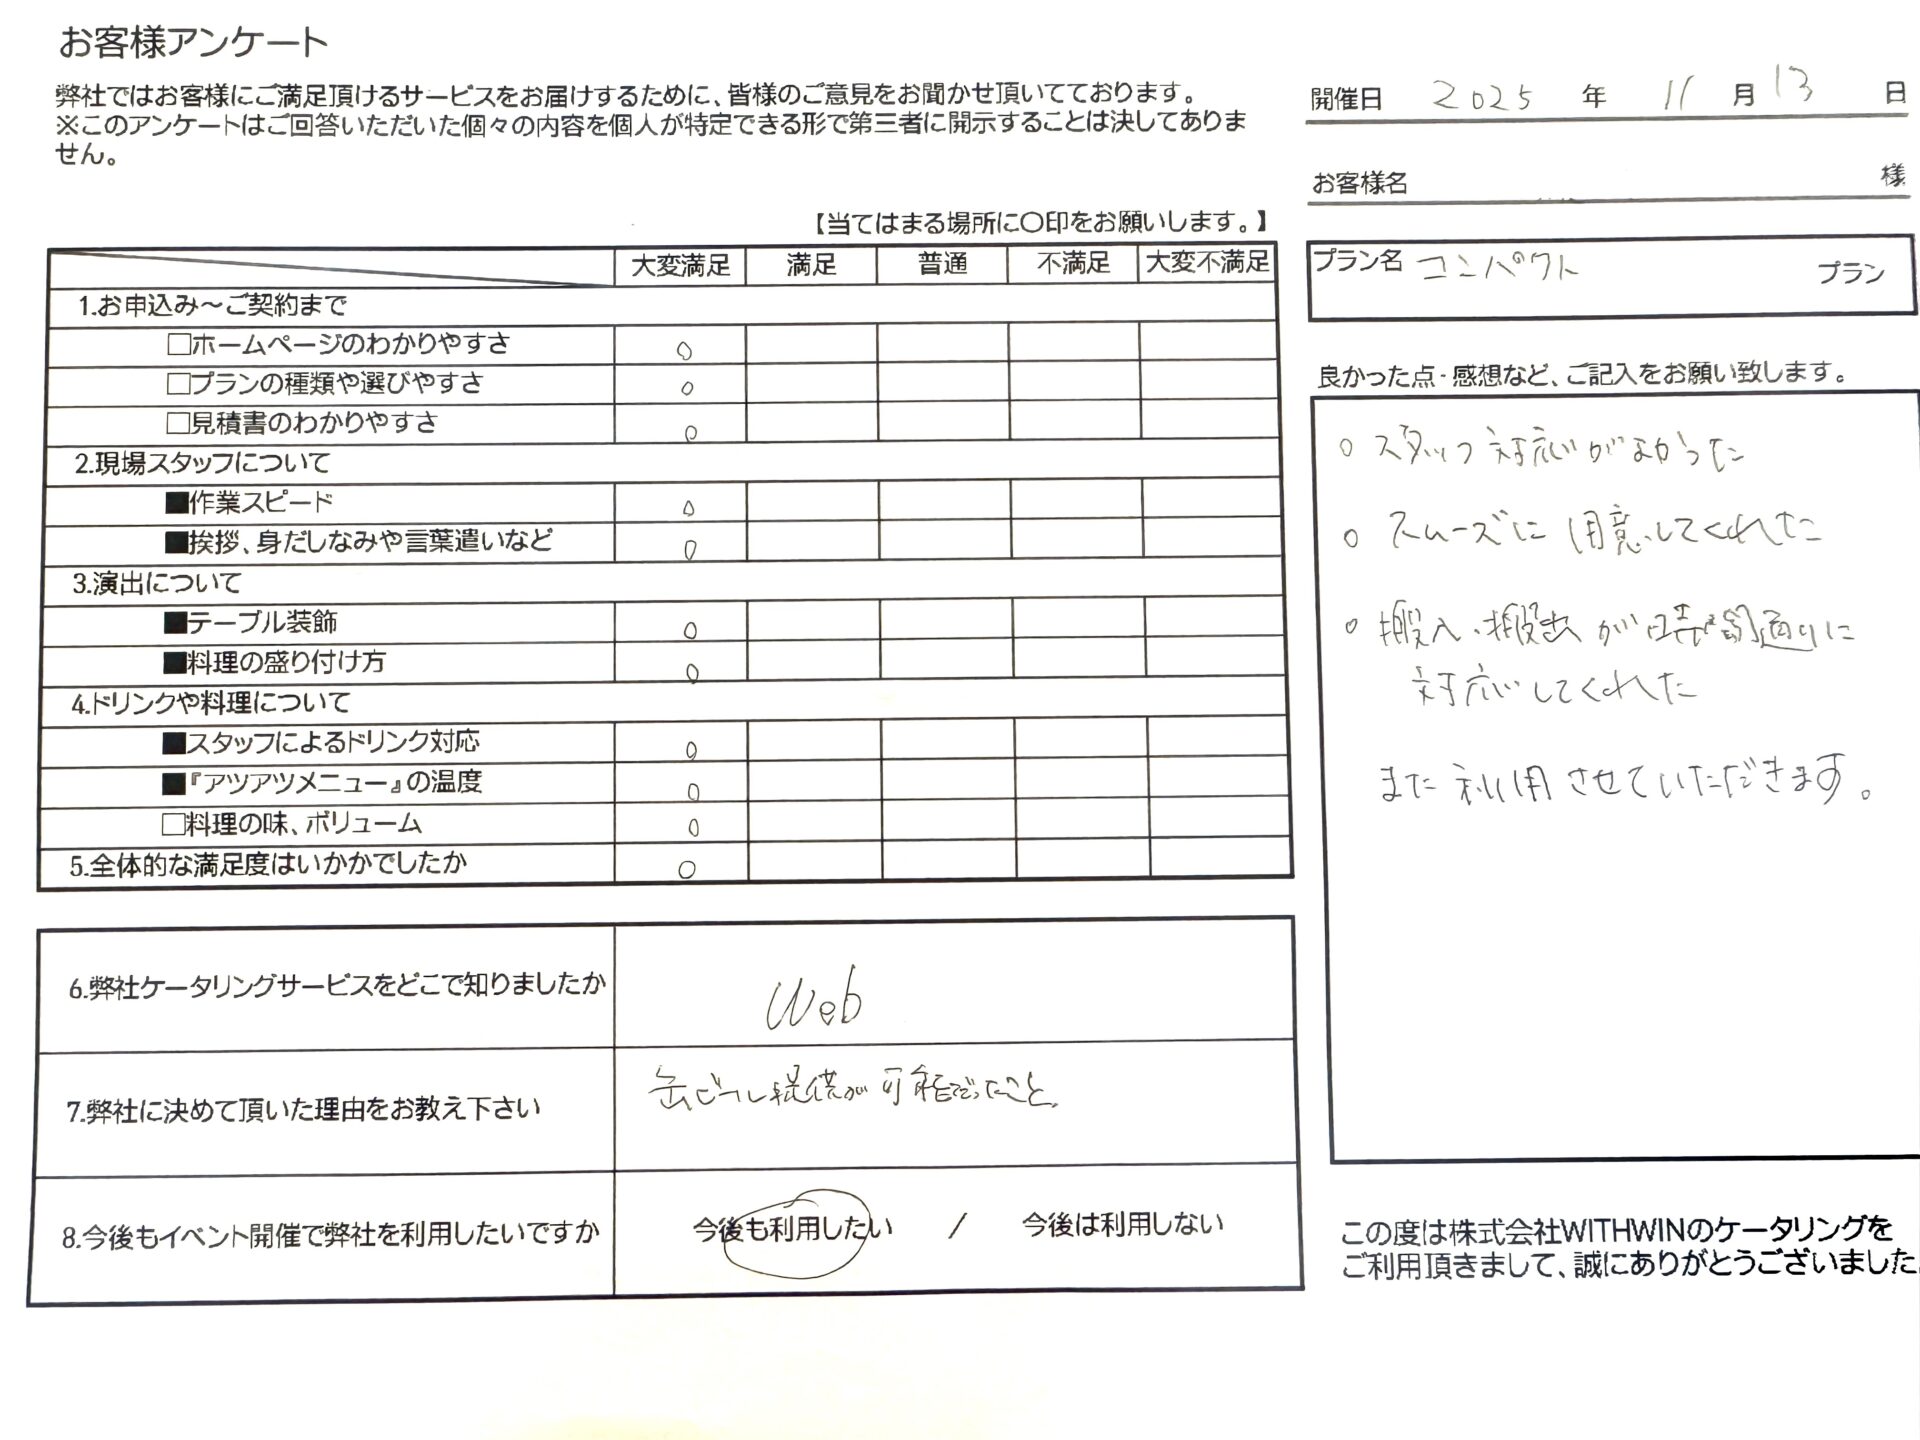 お客様アンケート
弊社ではお客様にご満足頂けるサービスをお届けするために、皆様のご意見をお聞かせ頂いてております。
※このアンケートはご回答いただいた個々の内容を個人が特定できる形で第三者に開示することは決してありま
せん。
開催日 2025 年 11 月 13 日
お客様名 様
【当てはまる場所に〇印をお願いします。】
プラン名 コンパクト プラン
大変満足 満足 普通 不満足 大変不満足
1.お申込み～ご契約まで
□ホームページのわかりやすさ ○
□プランの種類や選びやすさ ○
□見積書のわかりやすさ ○
2.現場スタッフについて
■作業スピード ○
■挨拶、身だしなみや言葉遣いなど ○
3.演出について
■テーブル装飾 ○
■料理の盛り付け方 ○
4.ドリンクや料理について
■スタッフによるドリンク対応 ○
■『アツアツメニュー』の温度 ○
□料理の味、ボリューム ○
5.全体的な満足度はいかかでしたか ○
良かった点・感想など、ご記入をお願い致します。
○ スタッフ対応がよかった
○ スムーズに用意してくれた
○ 搬入・搬出が時間通りに
対応してくれた
また利用させていただきます。
6.弊社ケータリングサービスをどこで知りましたか Web
7.弊社に決めて頂いた理由をお教え下さい 提供が可能だったこと
8.今後もイベント開催で弊社を利用したいですか 今後も利用したい / 今後は利用しない
この度は株式会社WITHWINのケータリングを
ご利用頂きまして、誠にありがとうございました